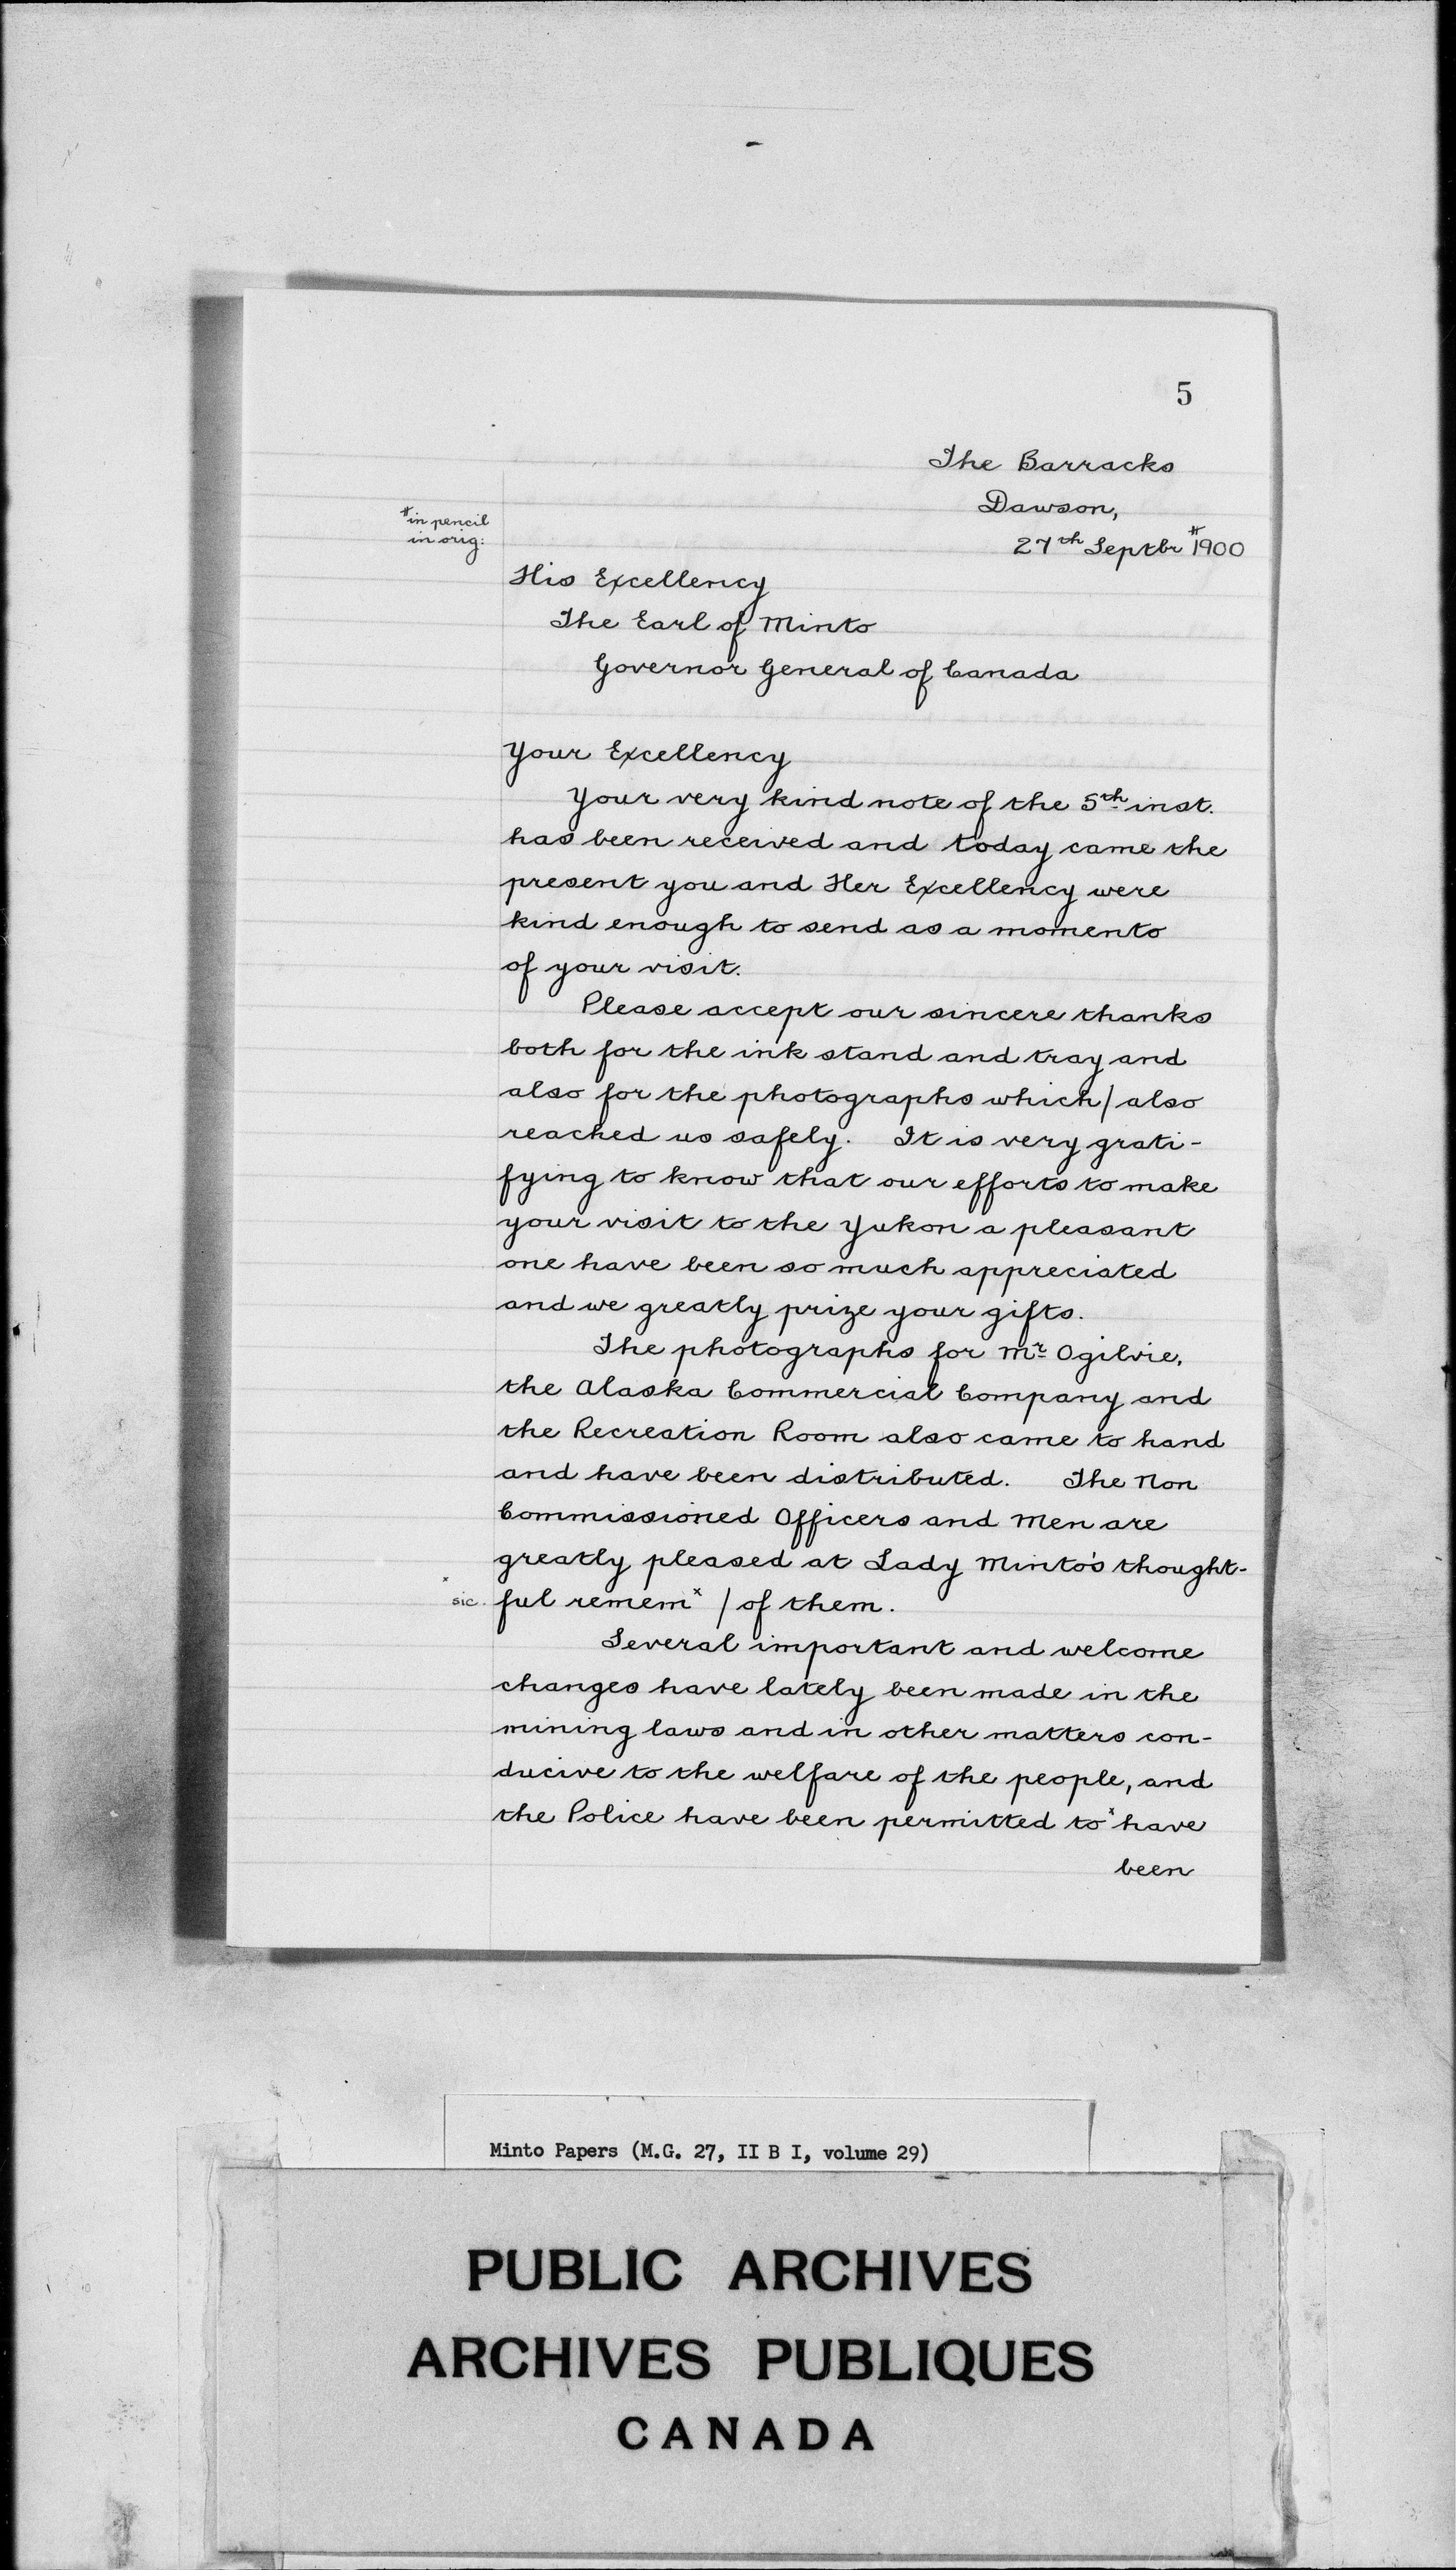 5
The Barracks
Dawson,
27th Septbr #1900
#in pencil
in orig:
His Excellency
The Earl of Minto
Governor General of Canada
Your Excellency
Your very kind note of the 5th inst.
has been received and today came the
present you and Her Excellency were
kind enough to send as a momento
of your visit.
Please accept our sincere thanks
both for the ink stand and tray and
also for the photographs which/also
reached us safely. It is very grati-
fying to know that our efforts to make
your visit to the Yukon a pleasant
one have been so much appreciated
and we greatly prize your gifts.
The photographs for Mr. Ogilvie,
the Alaska Commercial Company and
the Recreation Room also came to hand
and have been distributed. The Non
Commissioned Officers and Men are
greatly pleased at Lady Minto's thought-
x sic. ful remem x / of them.
Several important and welcome
changes have lately been made in the
mining laws and in other matters con-
ducive to the welfare of the people, and
the Police have been permitted to x have
been
Minto Papers (M.G. 27, II B I, volume 29)
PUBLIC ARCHIVES
ARCHIVES PUBLIQUES
CANADA